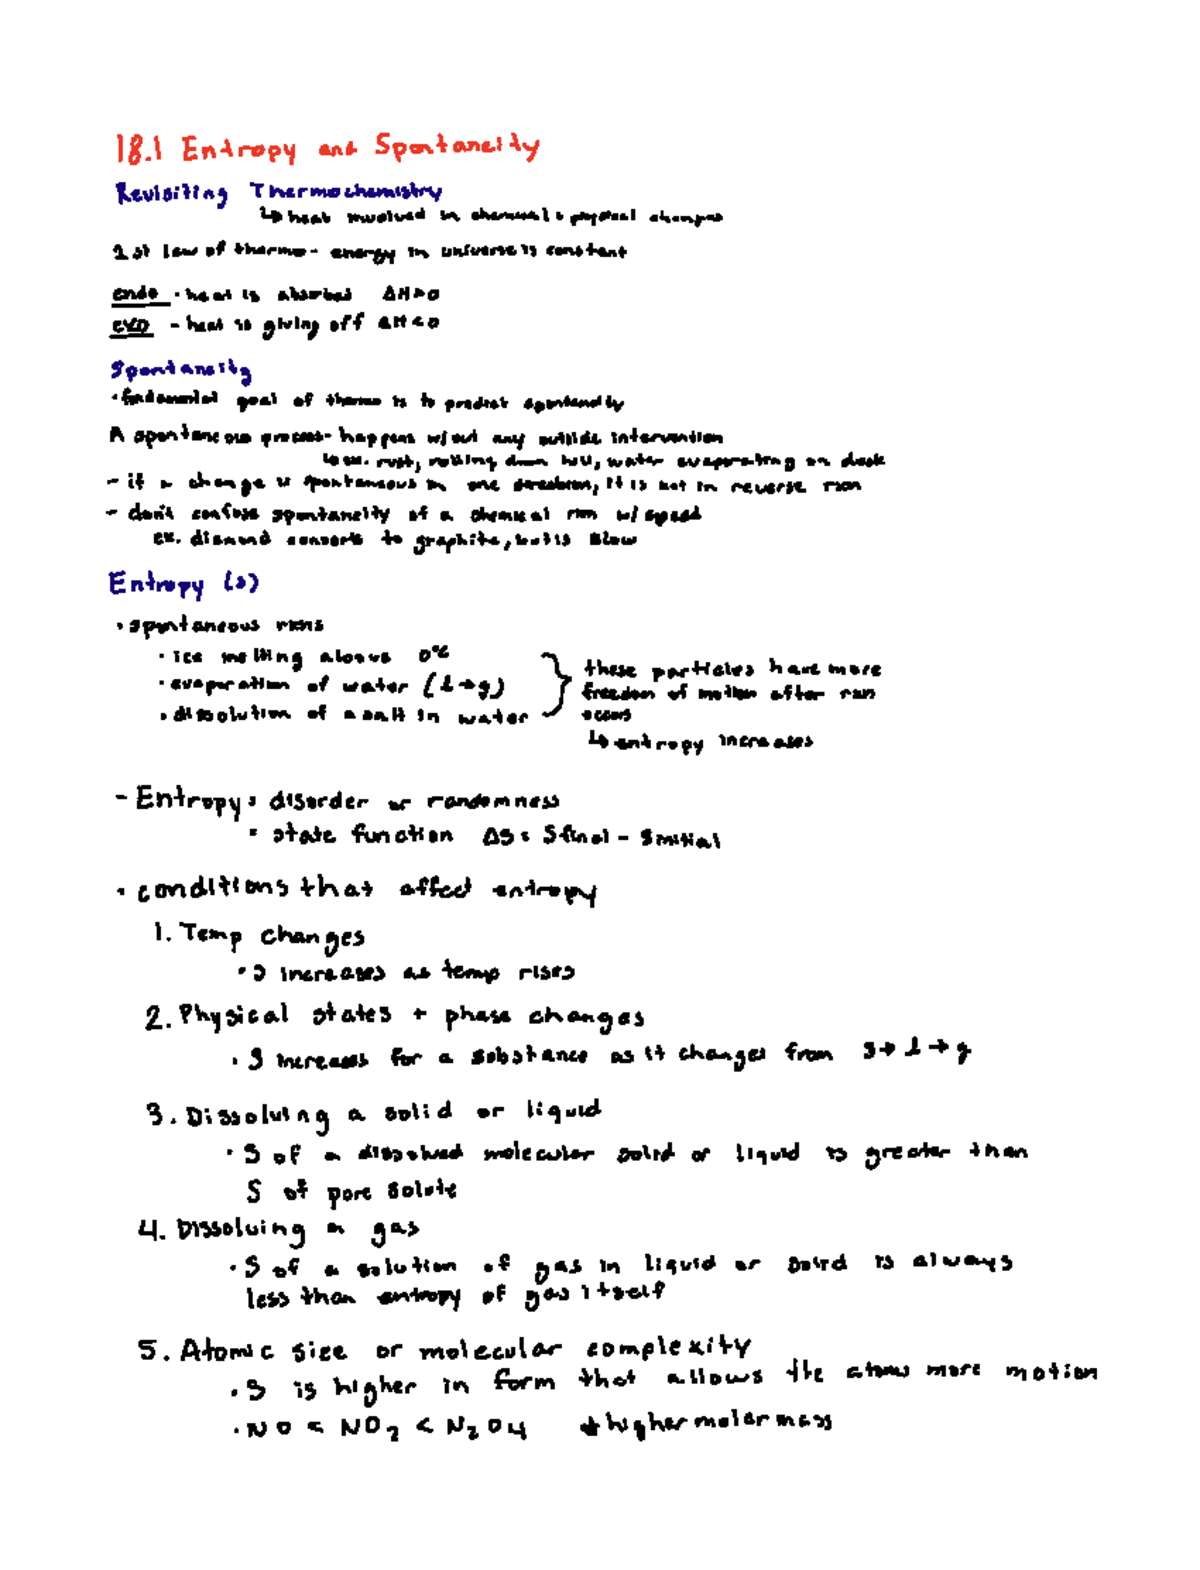 18.1 Entropy and Spontaneity
Revisiting Thermochemistry
↳ heat involved in chemical & physical changes
1st law of thermo - energy in universe is constant
endo - heat is absorbed ΔH>0
exo - heat is giving off ΔH<0
Spontaneity
• fundamental goal of thermo is to predict spontaneity
A spontaneous process - happens w/out any outside intervention
↳ ex. rust, rolling down hill, water evaporating on desk
- if a change is spontaneous in one direction, it is not in reverse rxn
- don't confuse spontaneity of a chemical rxn w/ speed
ex. diamond converts to graphite, but is slow
Entropy (s)
• spontaneous rxns
• ice melting above 0°C
• evaporation of water (l→g)
• dissolution of a salt in water
these particles have more
freedom of motion after rxn
occurs
↳ entropy increases
- Entropy: disorder or randomness
• state function ΔS = Sfinal - Sinitial
• conditions that affect entropy
1. Temp changes
• S increases as temp rises
2. Physical states + phase changes
• S increases for a substance as it changes from s→l→g
3. Dissolving a solid or liquid
• S of a dissolved molecular solid or liquid is greater than
S of pure solute
4. Dissolving a gas
• S of a solution of gas in liquid or solid is always
less than entropy of gas itself
5. Atomic size or molecular complexity
• S is higher in form that allows the atoms more motion
• NO < NO₂ < N₂O₄ * higher molar mass